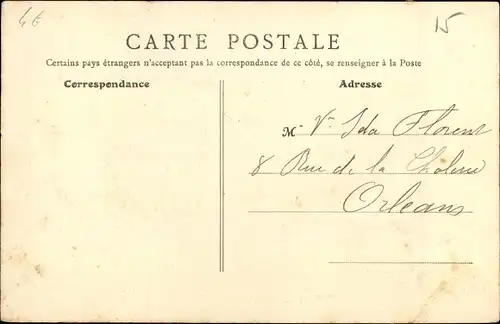 4€
15
CARTE POSTALE
Certains pays étrangers n'acceptant pas la correspondance de ce côté, se renseigner à la Poste
Correspondance
Adresse
M Vve Ida Florent
8 Rue de la
Orleans